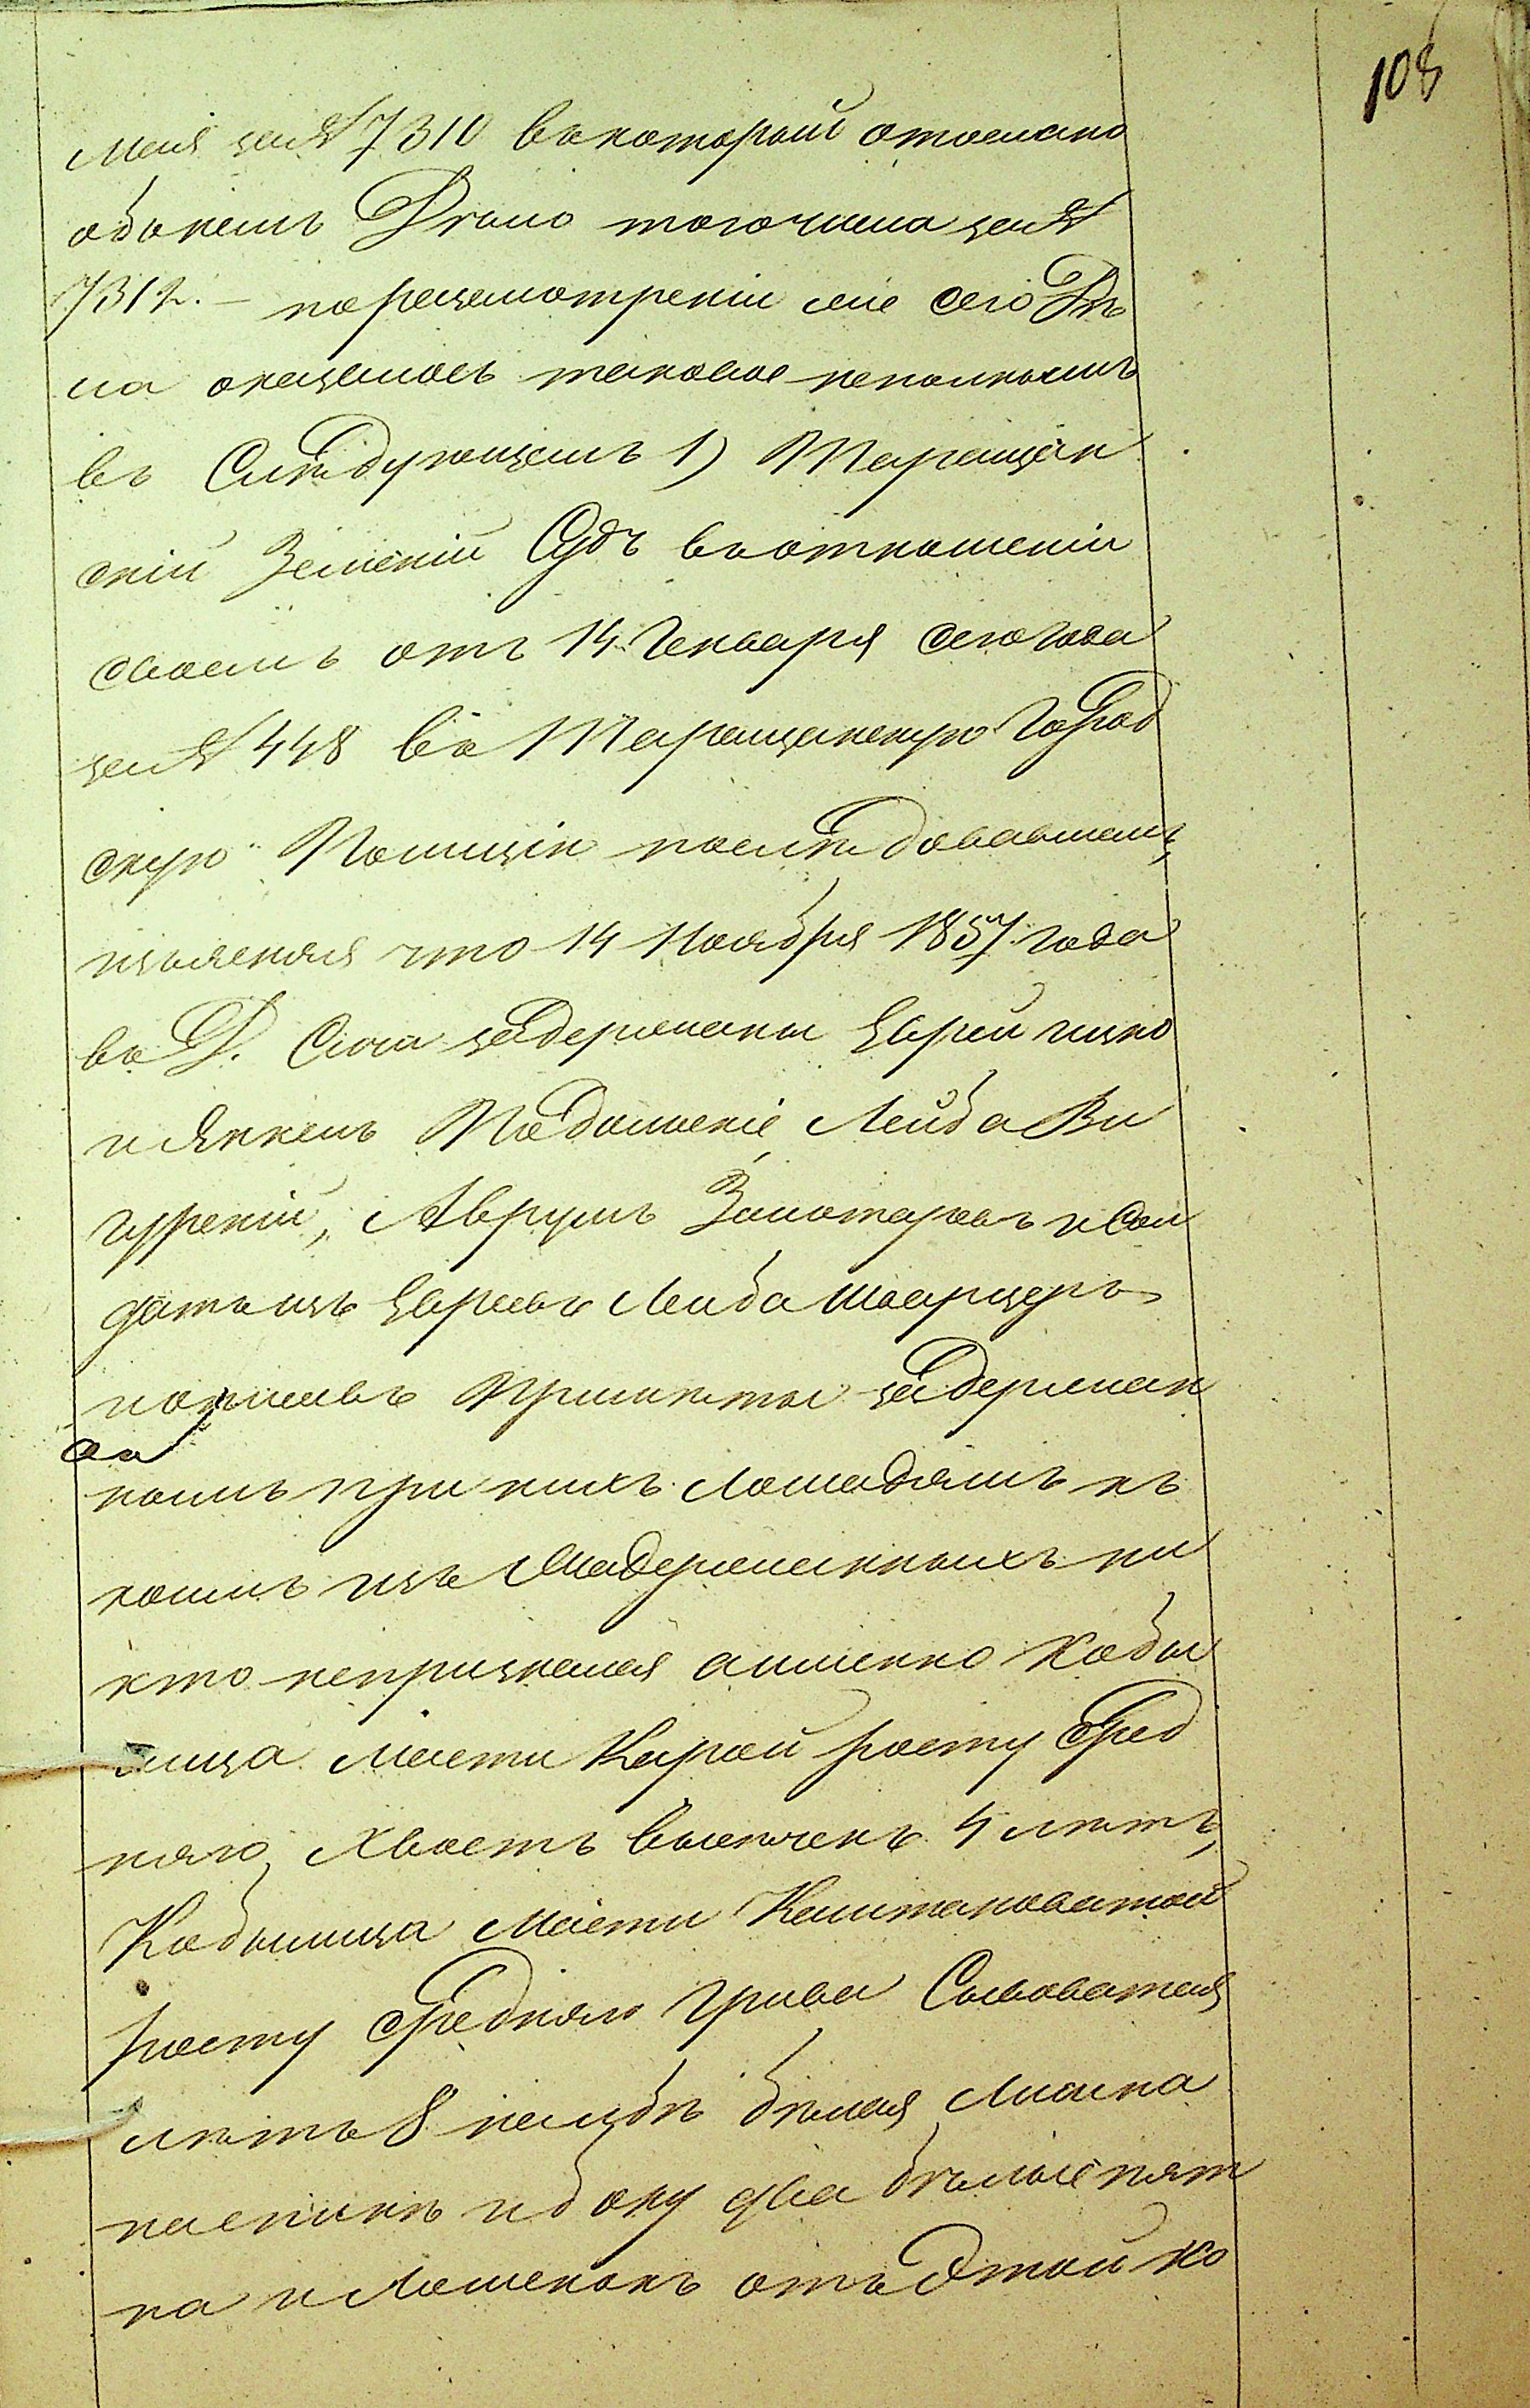 108
мая за № 7310 въ которой отослано
обо немъ Дѣло того числа за №
7312. – по разсмотреніи мие сего Дѣ
ла оказалось таковое неполнымъ
въ Слѣдующемъ 1) Таращан
скій Земскій Судъ въ отношеніи
своемъ отъ 14 Генваря сего года
за № 448 въ Таращанскую Город
скую Полицію послѣдовавшемъ,
изъясняя что 14 Ноября 1857 года
въ Д. задержаны Еврей Ицко
и Янкель Подольскіе Лейба Ви
гурскій, Аврумъ Золотаровъ и Сол
датъ изъ Евреевъ Лейба Шварцеръ
пояснивъ Примѣты задержан
ои
нымъ при нихъ Лошадямъ къ
коимъ изъ Задержанныхъ ни
кто непризнался а именно Кобы
лица Масти Карой росту Сред
няго, Хвостъ 4 лѣтъ,
Кобылица Масти Каштановатой
росту Средняго Грива Сивоватая
лѣтъ 8 на лбѣ бѣлая Лысина
на спинѣ и боку два бѣлые пят
на и Лошенокъ отъ Этой ко